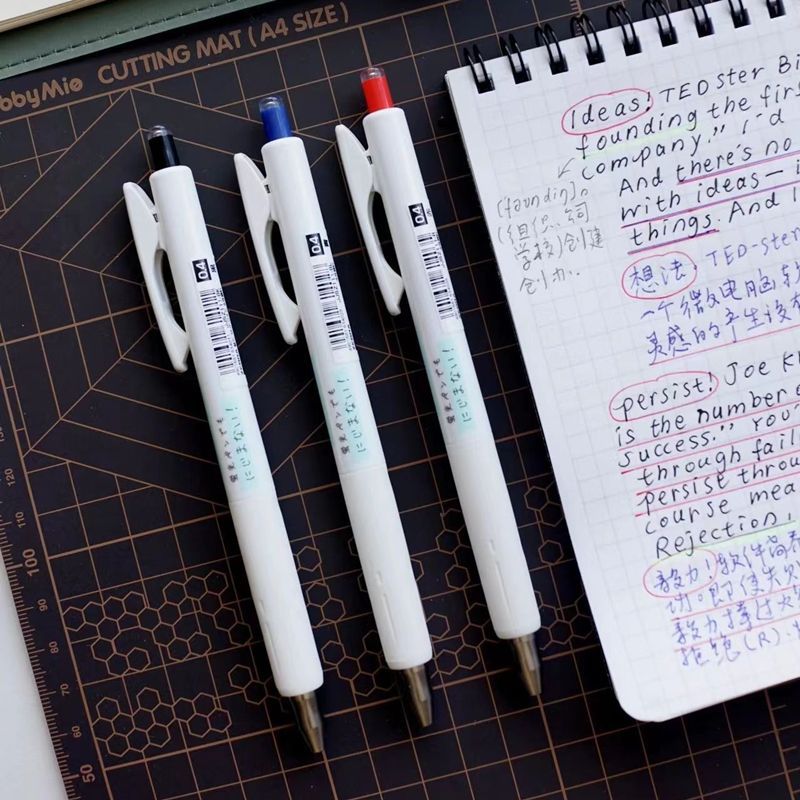 bbyMio CUTTING MAT ( A4 SIZE )
0.4
0.4
0.4
蛍光ペンでも
にじまない!
蛍光ペンでも
にじまない!
蛍光ペンでも
にじまない!
100
50
Ideas! TEDster Bi
founding the firs
company." I'd
And there's no
with ideas— i
things. And I
(组织.
学校)创建
创办.
想法: TED-ster
一个微电脑软
灵感的产生没有
persist! Joe K
is the number o
success." You
through fail
persist throu
course mea
Rejection,
毅力!
功.即使失败
毅力撑过
拒绝(R).